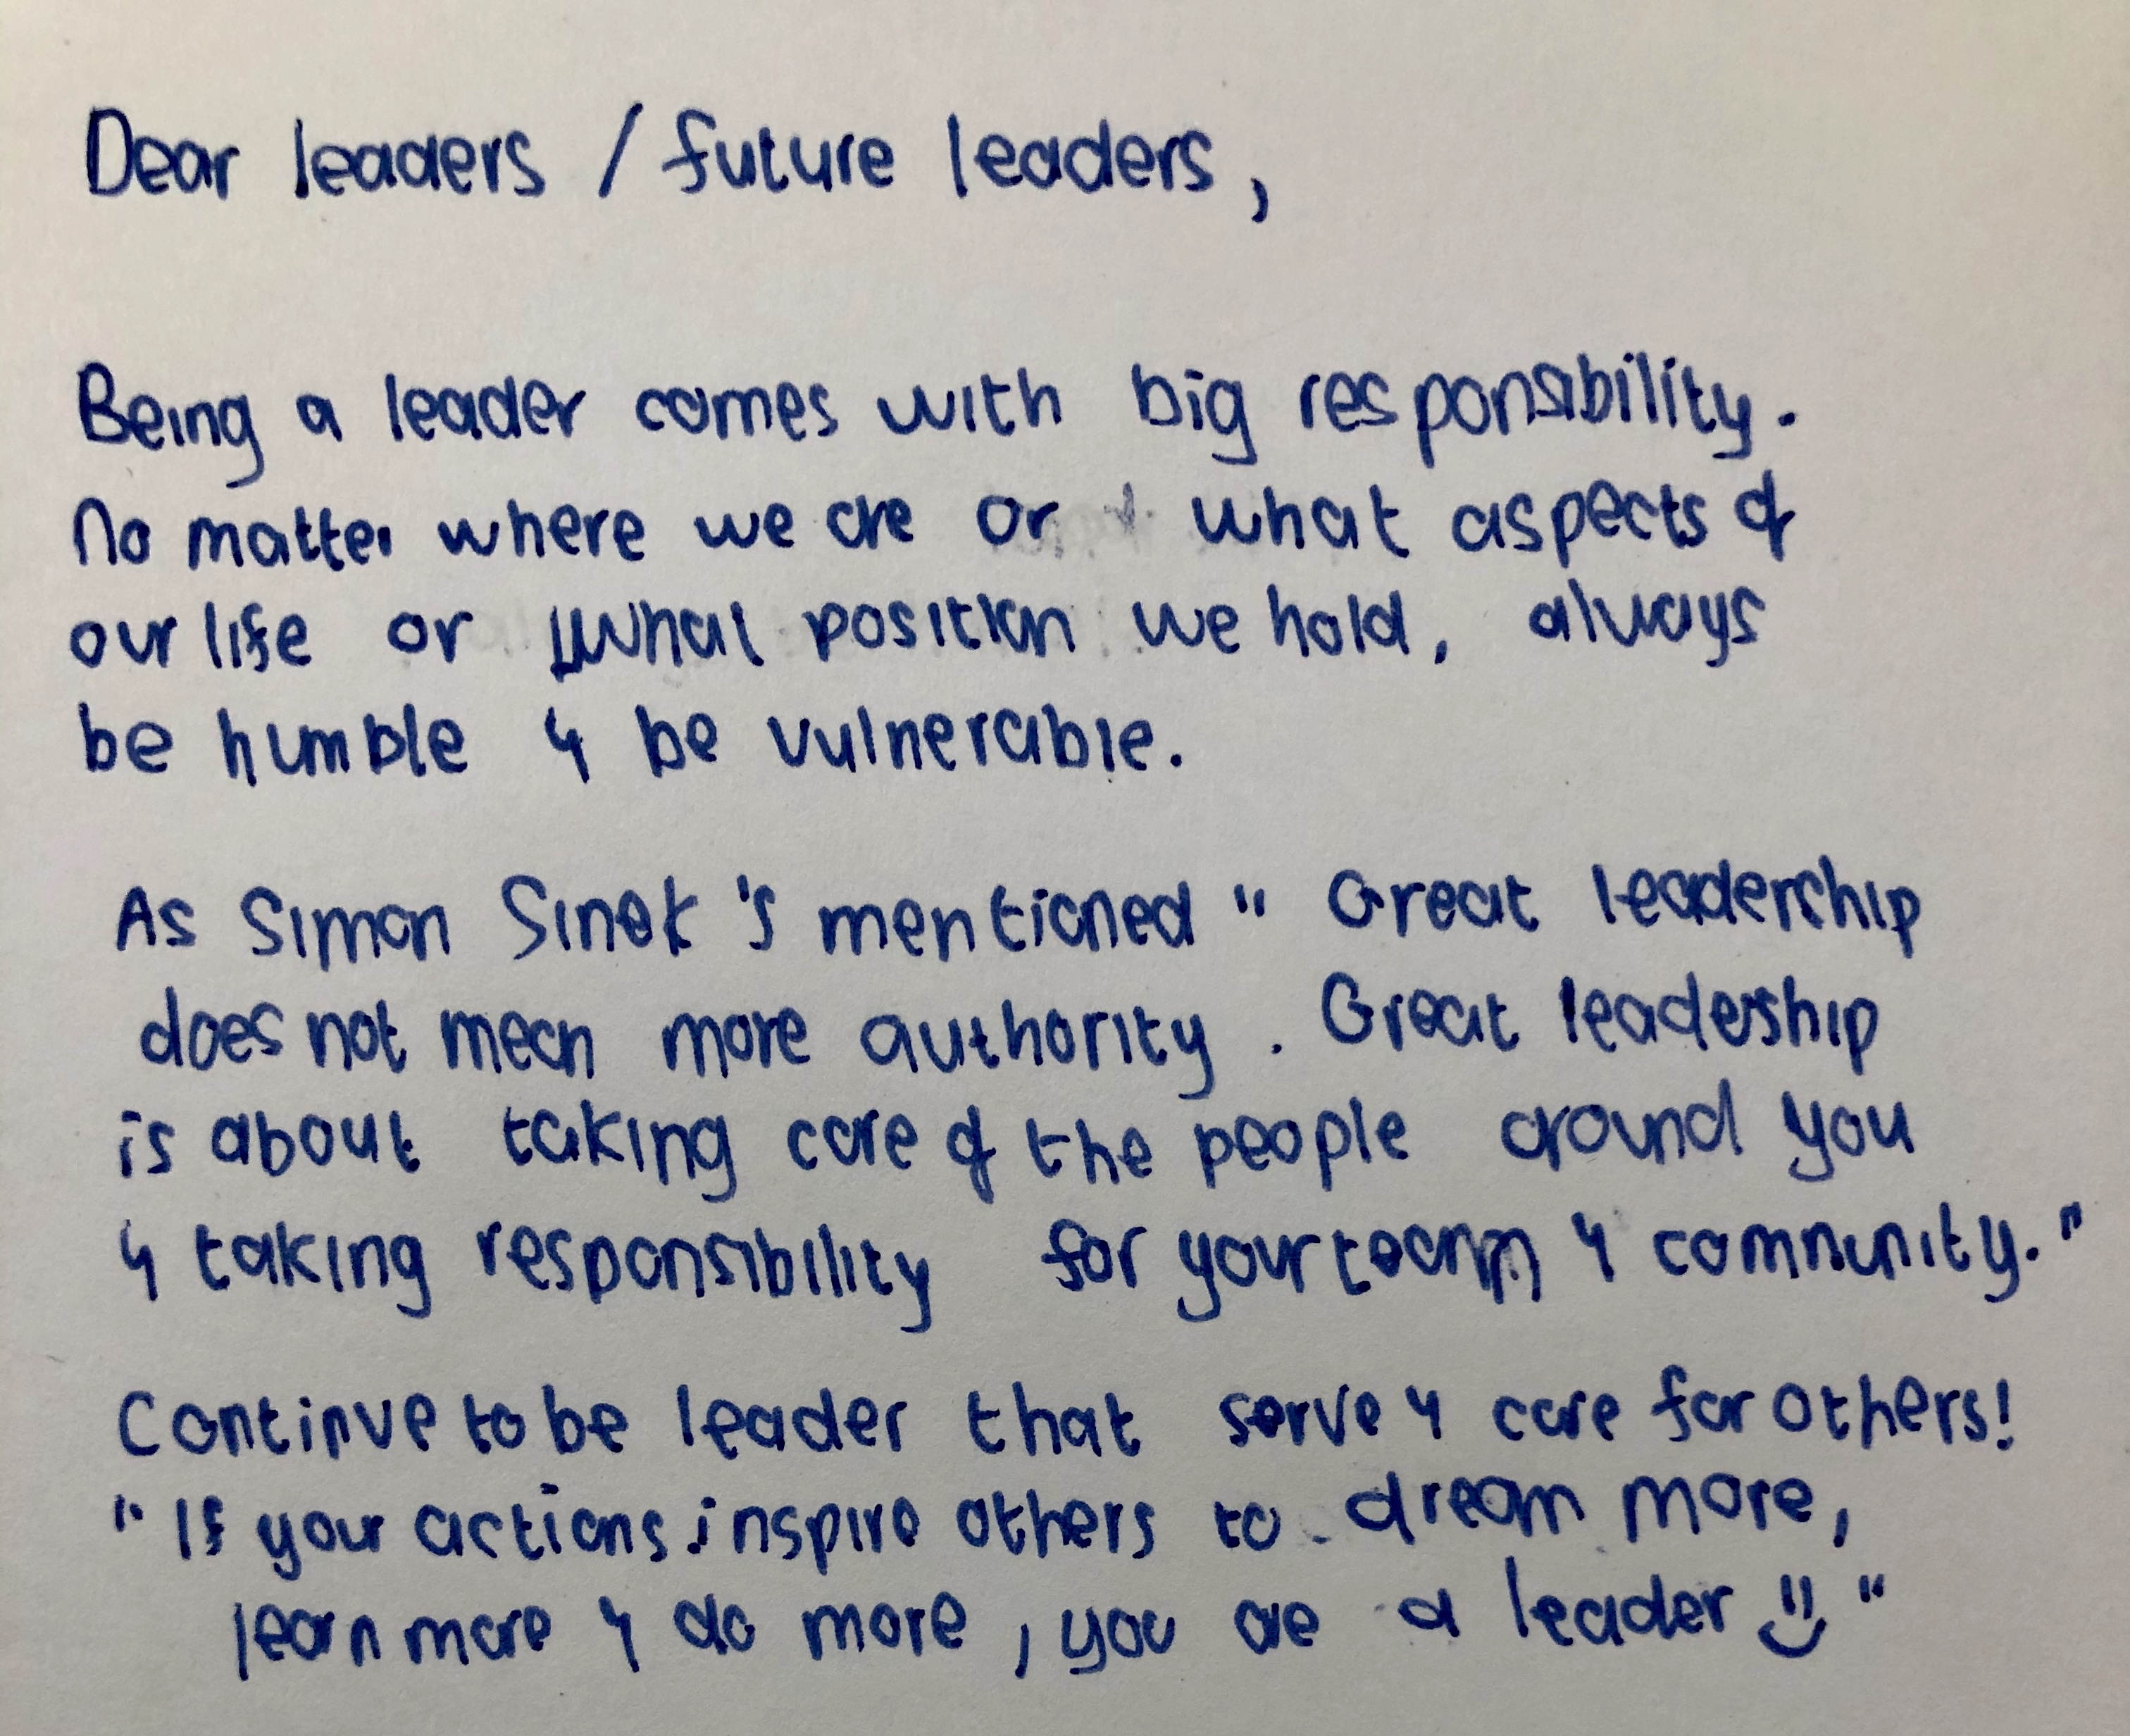 Dear leaders / future leaders,
Being a leader comes with big responsibility.
No matter where we are or what aspects of
our life or what position we hold, always
be humble & be vulnerable.
As Simon Sinek's mentioned " Great leadership
does not mean more authority. Great leadership
is about taking care of the people around you
& taking responsibility for your team & community."
Continue to be leader that serve & care for others!
"If your actions inspire others to dream more,
learn more & do more, you are a leader "